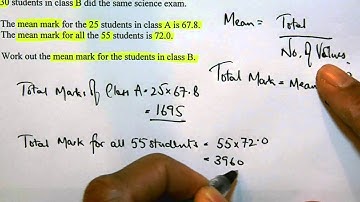 30 students in class B did the same science exam.
The mean mark for the 25 students in class A is 67.8.
The mean mark for all the 55 students is 72.0.
Work out the mean mark for the students in class B.
Mean = Total
No. of Values
Total Mark = Mean
Total Marks of Class A = 25 x 67.8
= 1695
Total Mark for all 55 students = 55 x 72.0
= 3960